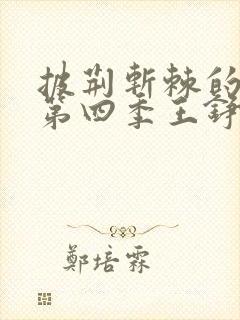 披荆斬棘的
第四季王錚
鄭培霖